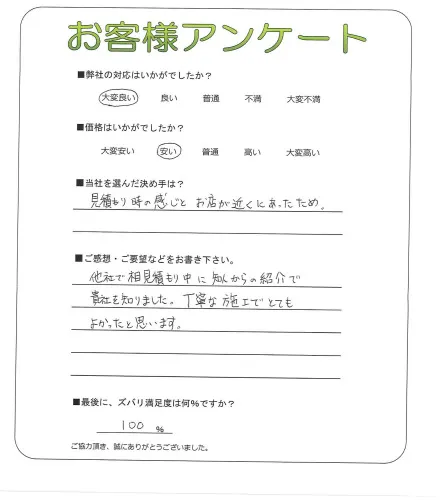 お客様アンケート
■弊社の対応はいかがでしたか？
大変良い 良い 普通 不満 大変不満
■価格はいかがでしたか？
大変安い 安い 普通 高い 大変高い
■当社を選んだ決め手は？
見積もり時の感じと お店が近くにあったため。
■ご感想・ご要望などをお書き下さい。
他社で相見積もり中に知人からの紹介で
貴社を知りました。丁寧な施工でとても
よかったと思います。
■最後に、ズバリ満足度は何%ですか？
100 %
ご協力頂き、誠にありがとうございました。